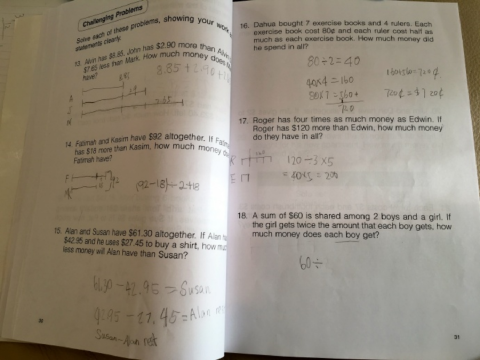 Challenging Problems
Solve each of these problems, showing your work
statements clearly.
13. Alvin has $8.85. John has $2.90 more than Alvin
$7.65 less than Mark. How much money does
have?
14. Fatimah and Kasim have $92 altogether. If Fatim
has $18 more than Kasim, how much money do
Fatimah have?
(92-18)÷2+18
15. Alan and Susan have $61.30 altogether. If Alan ha
$42.95 and he uses $27.45 to buy a shirt, how mu
less money will Alan have than Susan?
61.30-42.95=Susan
42.95-27.45=Alan
Susan-Alan
30
16. Dahua bought 7 exercise books and 4 rulers. Each
exercise book cost 80¢ and each ruler cost half as
much as each exercise book. How much money did
he spend in all?
80÷2=40
40x4=160
80x7=560
720
720¢=$7.20
17. Roger has four times as much money as Edwin. If
Roger has $120 more than Edwin, how much money
do they have in all?
120÷3x5
=40x5=200
18. A sum of $60 is shared among 2 boys and a girl. If
the girl gets twice the amount that each boy gets, how
much money does each boy get?
60÷
31